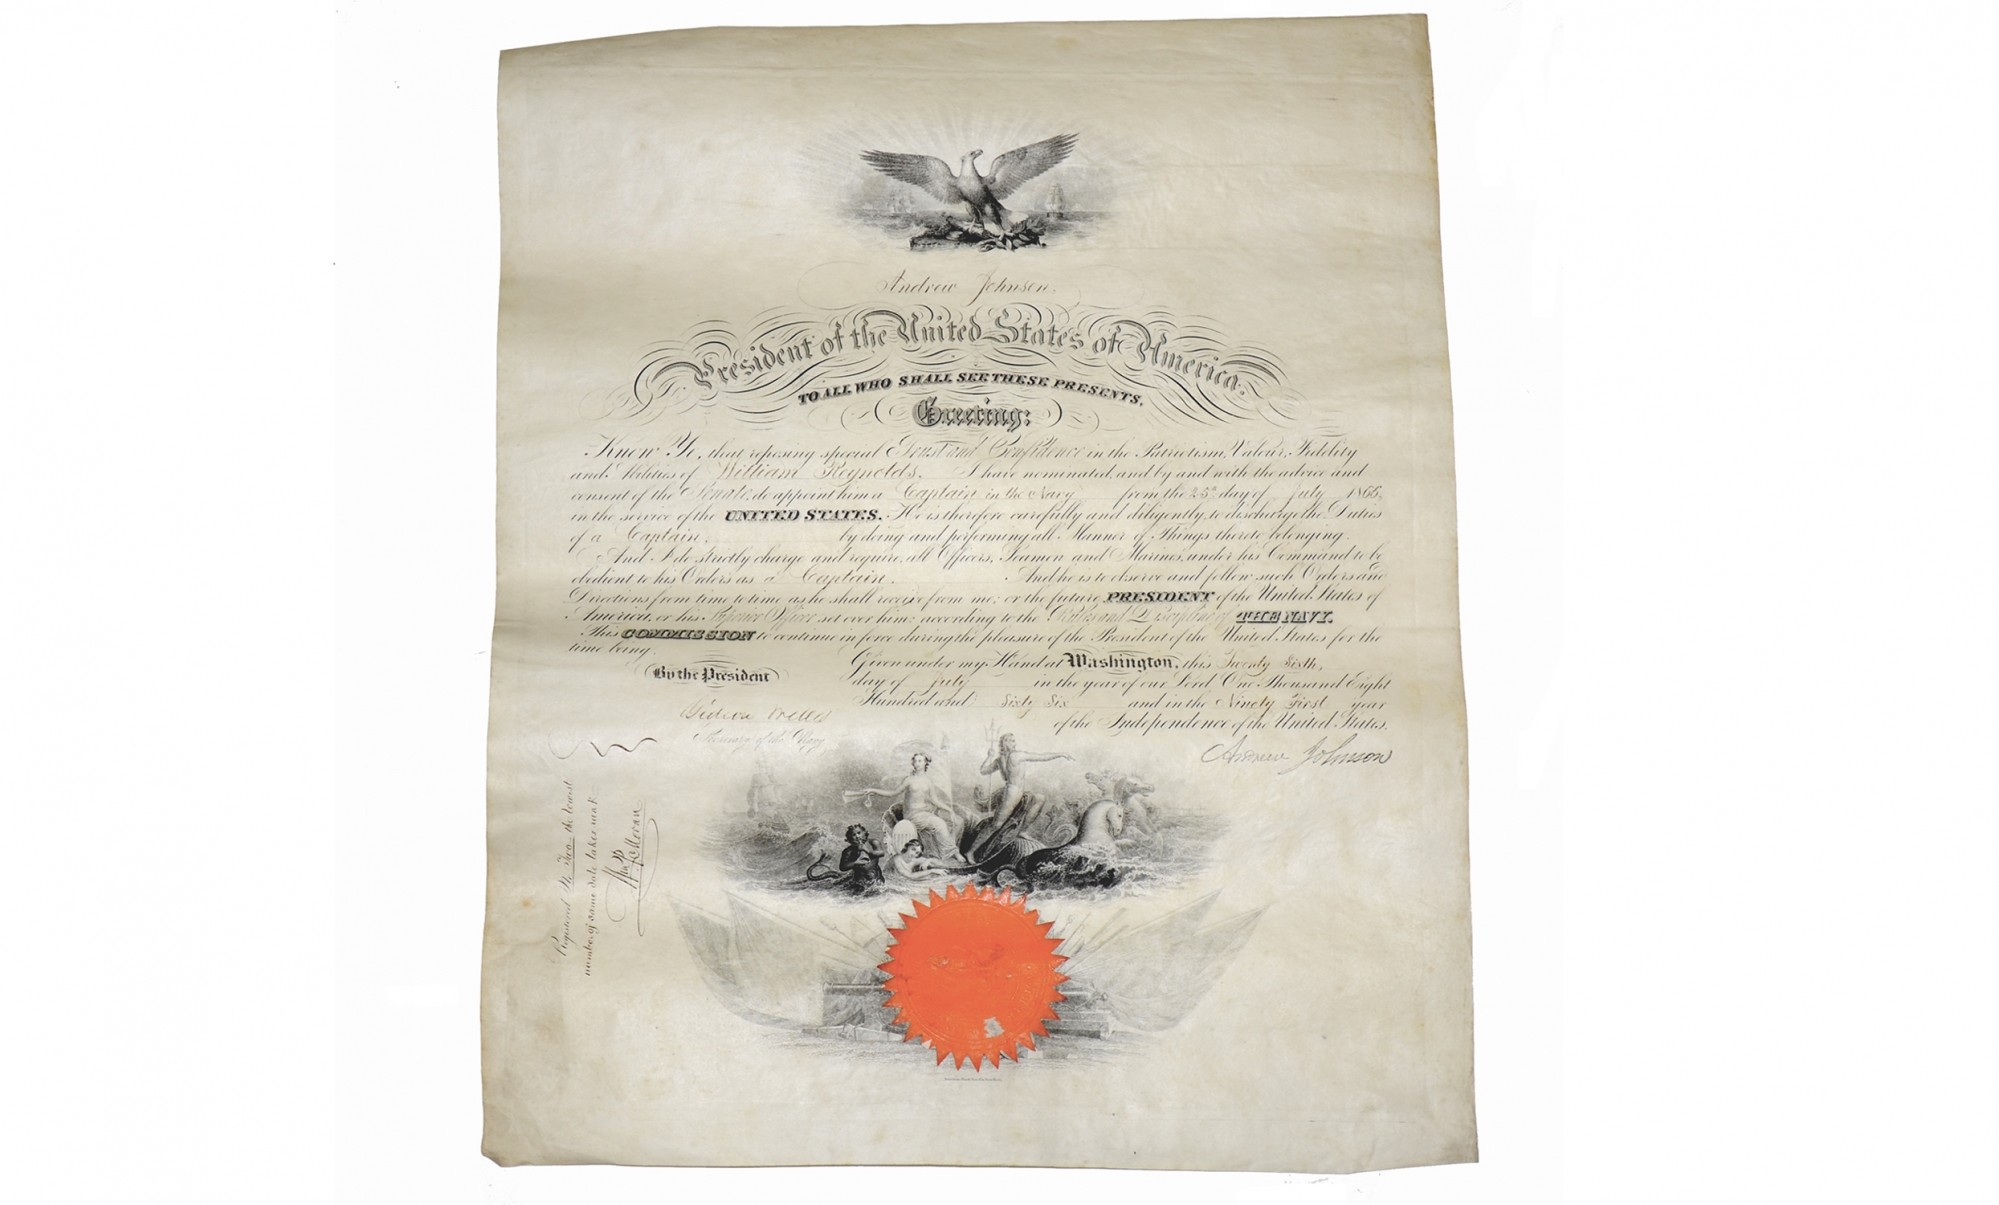 Andrew Johnson,
President of the United States of America.
TO ALL WHO SHALL SEE THESE PRESENTS,
Greeting:
Know Ye, that reposing special Trust and Confidence in the Patriotism, Valour, Fidelity
and Abilities of William Reynolds, I have nominated and by and with the advice and
consent of the Senate, do appoint him a Captain in the Navy from the 25th day of July 1866,
in the service of the UNITED STATES. He is therefore carefully and diligently to discharge the Duties
of a Captain, by doing and performing all Manner of Things thereto belonging.
And I do strictly charge and require all Officers, Seamen and Marines under his Command to be
obedient to his Orders as a Captain. And he is to observe and follow such Orders and
Directions from time to time as he shall receive from me, or the future PRESIDENT of the United States of
America, or his Superior Officer set over him, according to the Rules and Discipline of THE NAVY.
This COMMISSION to continue in force during the pleasure of the President of the United States for the
time being.
Given under my Hand at Washington, this Twenty Sixth,
By the President
day of July in the year of our Lord One Thousand Eight
Hundred and Sixty Six and in the Ninety First year
of the Independence of the United States.
Gideon Welles
Secretary of the Navy
Andrew Johnson
Registered No Two the lowest
number of same date takes rank